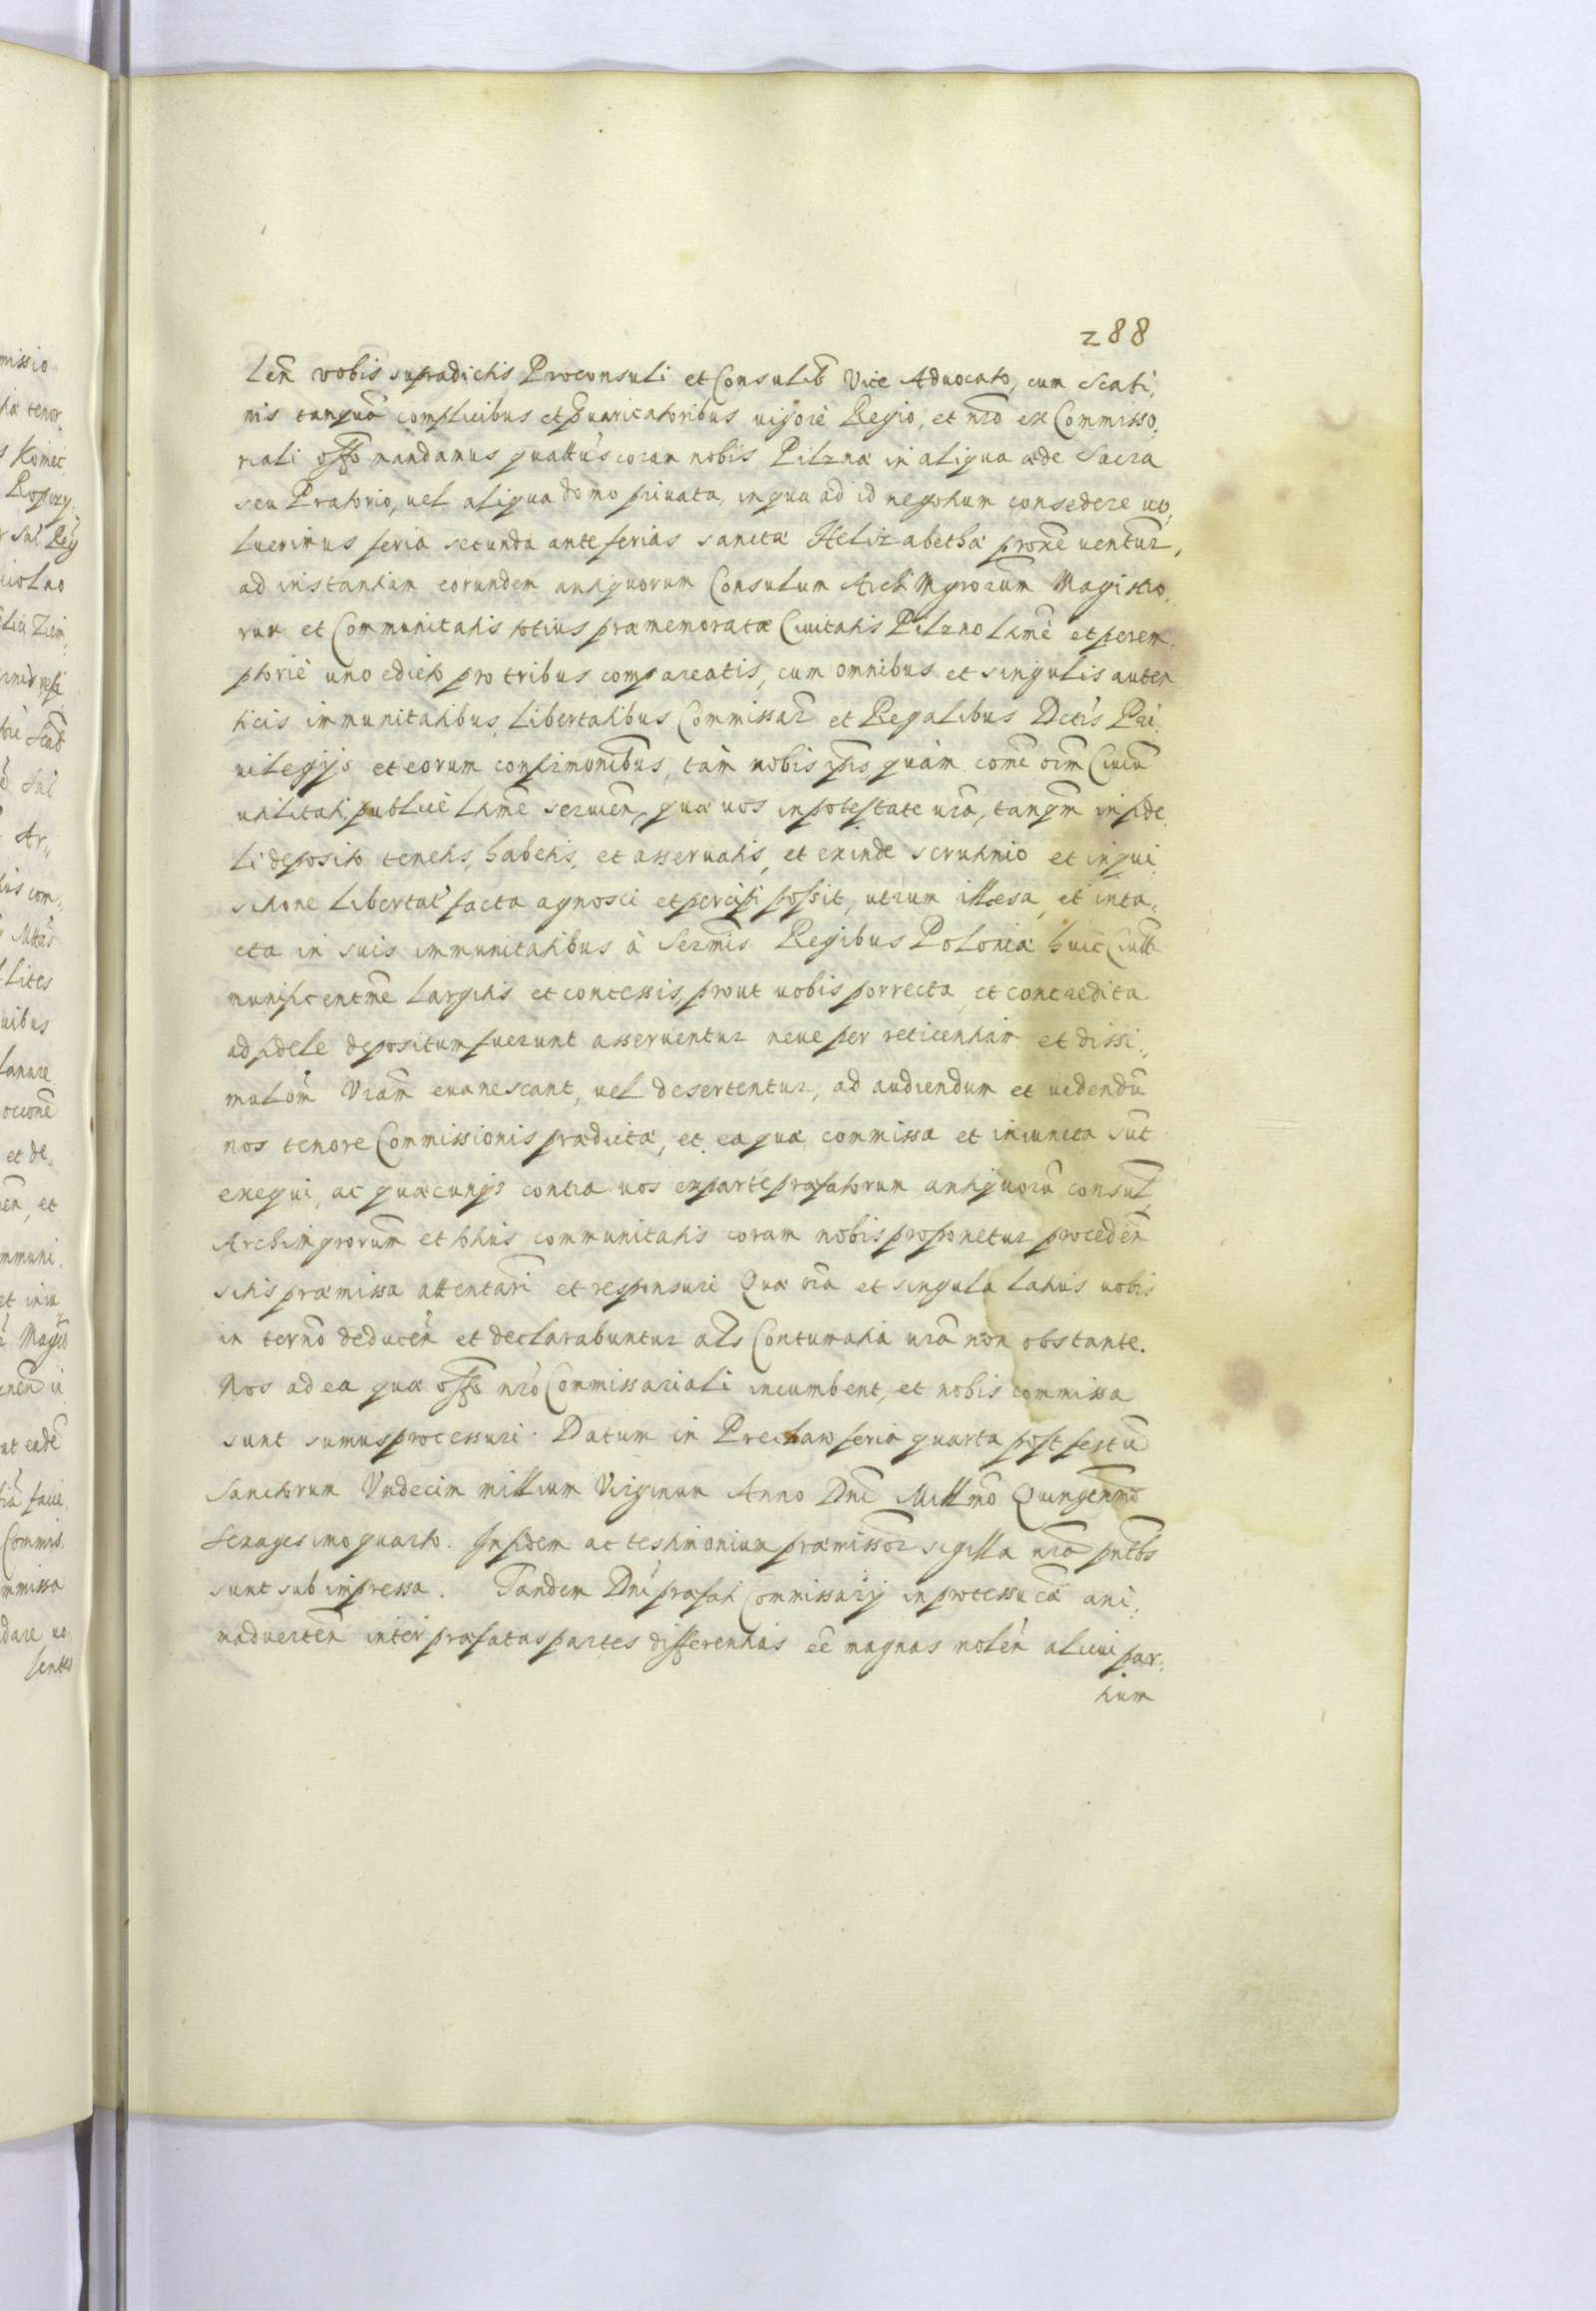 288
len̄ vobis supradictis Proconsuli et Consulib̄ Vice Aduocato, cum Scabi,
nis tanquā complicibus et p̱uaricatoribus uigore Regio, et nr̄o ex Commisso,
riali offō mandamus quattūs coram nobis Pilznæ in aliqua æde Sacra
seu Pratorio, uel aliqua domo priuata, in qua ad id negotium consedere uo,
luerimus feria secunda ante ferias sanctæ Helizabethæ proxē uentur̄,
ad instantiam eorundem antiquorum Consulum Archimgrorūm Magistro,
rum et Communitatis totius præmemoratæ Ciuitatis Pilzno lt̄me et perem,
ptorie uno edicto pro tribus compareatis, cum omnibus et singulis auten
ticis immunitatibus, libertatibus Commissar̄ et Regalibus Dctis Pri,
uilegijs et eorum confirmonībus, tam nobis ip̄is quàm comē oīm Ciuiū
utilitati publicè lt̄me seruien̄, quæ uos in potestate ur̄a, tanqm̄ in fide
li deposito tenetis, habetis, et asseruatis, et exinde scrutinio et inqui,
sitione libertat̄ facta agnosci et percipi possit, utrum illæsa, et inta,
cta in suis immunitatibus à Serm̄is Regibus Poloniæ huic Ciuitt̄
munificentm̄e largitis et concessis, prout uobis porrecta et concredita
ad fidele depositum fuerunt asseruentur neue per reticentiam et dissi,
mulōm Vr̄am euanescant, uel desertentur, ad audiendum et uidendū
nos tenore Commissionis prædictæ, et ea quæ commissa et iniuncta sūt
exequi, ac quæcunqs contra uos ex parte præfatorum antiquorū consul̄
Archimgrorum̄ et totius communitatis coram nobis proponetur proceden̄
sitis præmissa attentari et responsuri Quæ oīa et singula latius uobis
in termo deducen̄ et declarabuntur als̄ Contumatia ur̄a non obstante.
Nos ad ea quæ offō nr̄o Commissariali incumbent, et nobis commissa
sunt sumus processuri. Datum in Preclaw feria quarta post festū
Sanctorum Vndecim millium Virginum Anno Dnī Millm̄o Quingenm̄o
Sexagesimo quarto. In fidem ac testimonium præmissor̄ sigilla nr̄a pn̄tbs
sunt subimpressa. Tandem Dnī præfati Commissarij in processu cæ ani,
maduerten̄ inter præfatas partes differentias eē magnas nolen̄ alicui par,
tium